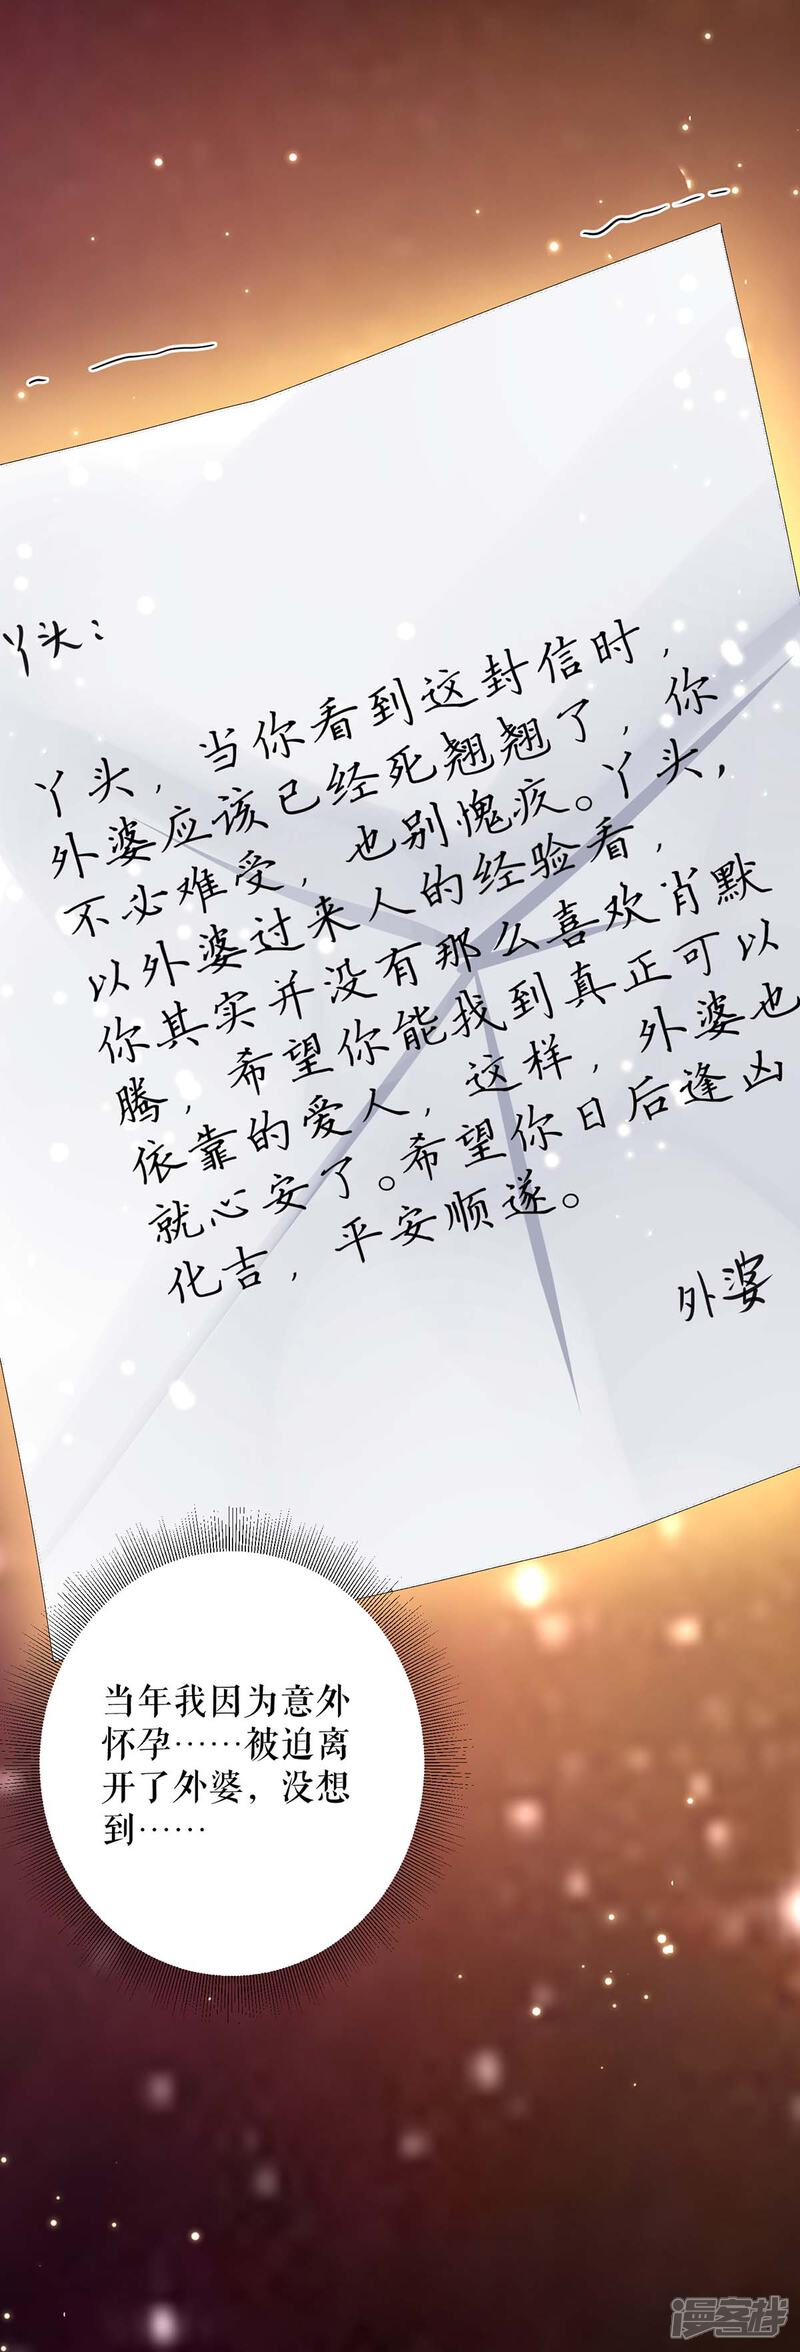 丫头：
丫头，当你看到这封信时，
外婆应该已经死翘翘了，你
不必难受，也别愧疚。丫头，
以外婆过来人的经验看，
你其实并没有那么喜欢肖默
腾，希望你能找到真正可以
依靠的爱人，这样，外婆也
就心安了。希望你日后逢凶
化吉，平安顺遂。
外婆
当年我因为意外
怀孕……被迫离
开了外婆，没想
到……
漫客栈